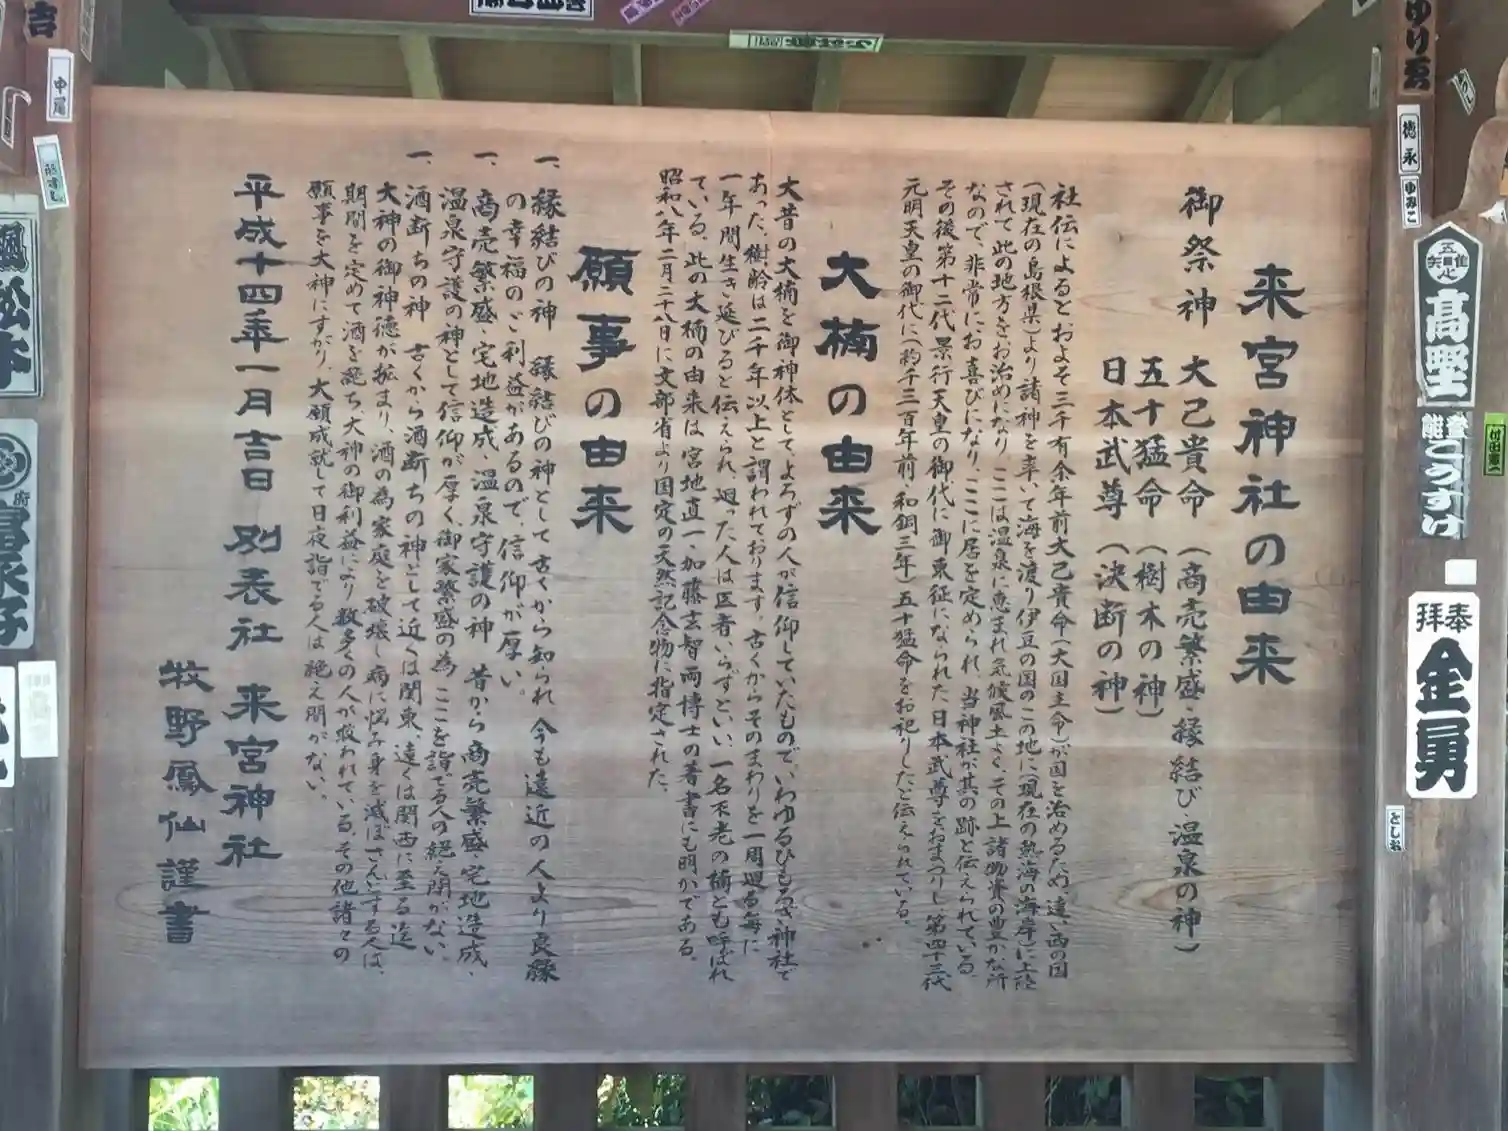 来宮神社の由来
御祭神 大己貴命 (商売繁盛・縁結び・温泉の神)
五十猛命 (樹木の神)
日本武尊 (決断の神)
社伝によるとおよそ三千有余年前大己貴命(大国主命)が国を治めるため、遠い西の国
(現在の島根県)より諸神を率いて海を渡り伊豆の国のこの地に(現在の熱海の海岸)に上陸
されて此の地方をお治めになり、ここは温泉に恵まれ気候風土よく、その上諸物資の豊かな所
なので、非常にお喜びになり、ここに居を定められ、当神社が其の跡と伝えられている。
その後第十二代景行天皇の御代に御東征になられた日本武尊をおまつりし第四十三代
元明天皇の御代に(約千三百年前、和銅三年)五十猛命をお祀りしたと伝えられている。
大楠の由来
大昔の大楠を御神体として、よろずの人が信仰していたもので、いわゆるひもろぎ神社で
あった、樹齢は二千年以上と謂われております。古くからそのまわりを一周廻る毎に
一年間生き延びると伝えられ、廻った人は医者いらずといい、一名不老の楠とも呼ばれ
ている、此の大楠の由来は宮地直一、加藤玄智両博士の著書にも明かである。
昭和八年二月二十八日に文部省より国定の天然記念物に指定された。
願事の由来
一、縁結びの神 縁結びの神として古くから知られ 今も遠近の人より良縁
の幸福のご利益があるので、信仰が厚い。
一、商売繁盛・宅地造成・温泉守護の神 昔から商売繁盛・宅地造成・
温泉守護の神として信仰が厚く、御家繁盛の為 ここを詣でる人の絶え間がない。
一、酒断ちの神 古くから酒断ちの神として近くは関東、遠くは関西に至る迄
大神の御神徳が拡まり、酒の為家庭を破壊し病に悩み身を滅ぼさんとする人は、
期間を定めて酒を絶ち、大神の御利益により数多くの人が救われている。その他諸々の
願事を大神にすがり、大願成就して日夜詣でる人は絶え間がない。
平成十四年一月吉日 別表社 来宮神社
牧野鳳仙謹書
吉
中尾
松本
ゆり香
徳永
ゆみこ
髙野
こうすけ
付田憲一
奉拝
金勇
としお